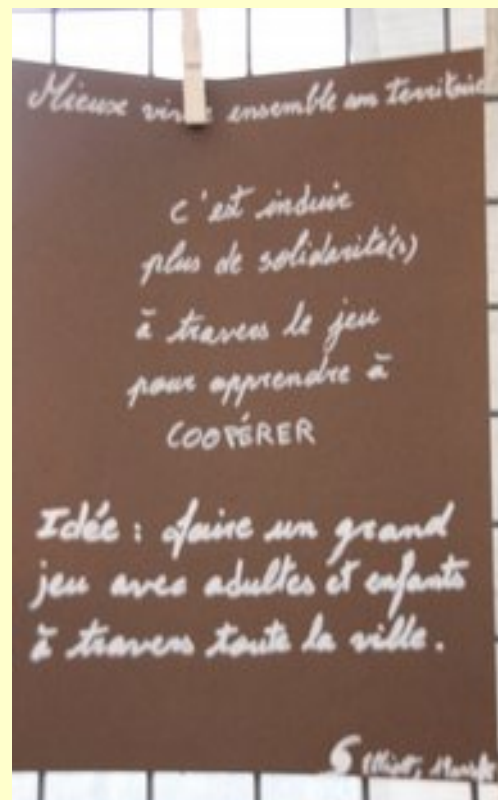 Mieux vivre ensemble son territoire
c'est induire
plus de solidarité(s)
à travers le jeu
pour apprendre à
COOPÉRER
Idée : faire un grand
jeu avec adultes et enfants
à travers toute la ville.
Elliott,